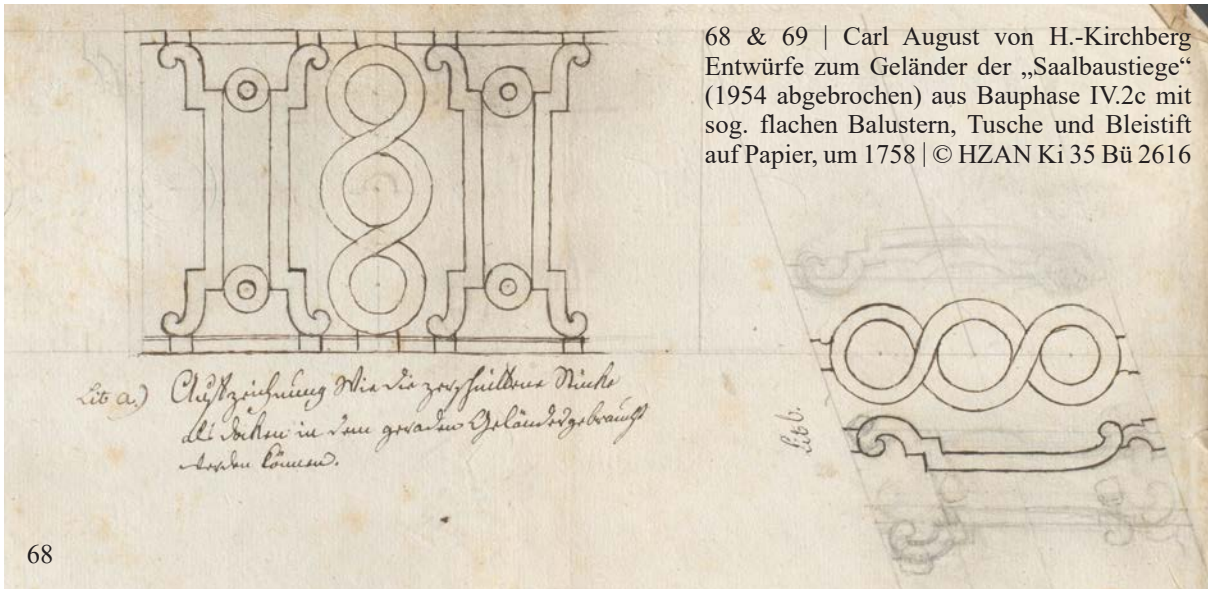 68 & 69 | Carl August von H.-Kirchberg
Entwürfe zum Geländer der „Saalbaustiege“
(1954 abgebrochen) aus Bauphase IV.2c mit
sog. flachen Balustern, Tusche und Bleistift
auf Papier, um 1758 | © HZAN Ki 35 Bü 2616
Lit a.) Aufzeichnung Wie die zerschnittene Stücke
als docken in dem geraden Geländer gebraucht
werden können.
Lit b.
68